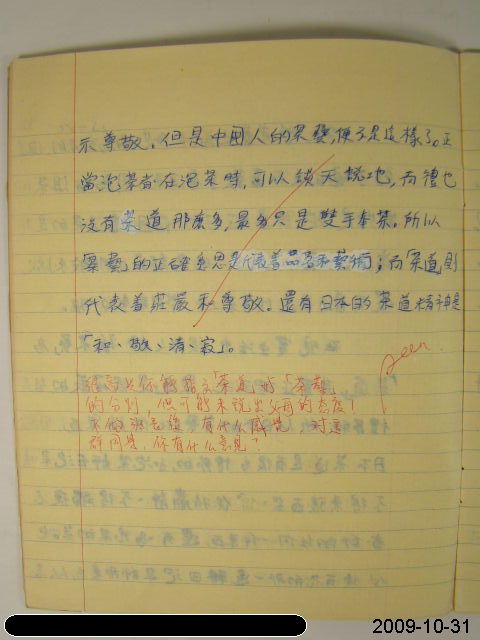 示尊敬。但是中國人的茶藝,便不是這樣了。正
當泡茶者在泡茶時,可以談天說地,而禮也
沒有茶道那麽多,最多只是雙手奉茶。所以
茶藝的正確意思是代表着品茗和藝術;而茶道則
代表着莊嚴和尊敬。還有日本的茶道精神是
「和、敬、清、寂」。
seen
你能指出「茶道」与「茶藝」
的分别,但可能未说出父母的态度!
有什么感觉,对这
群同学,你有什么意见?
2009-10-31